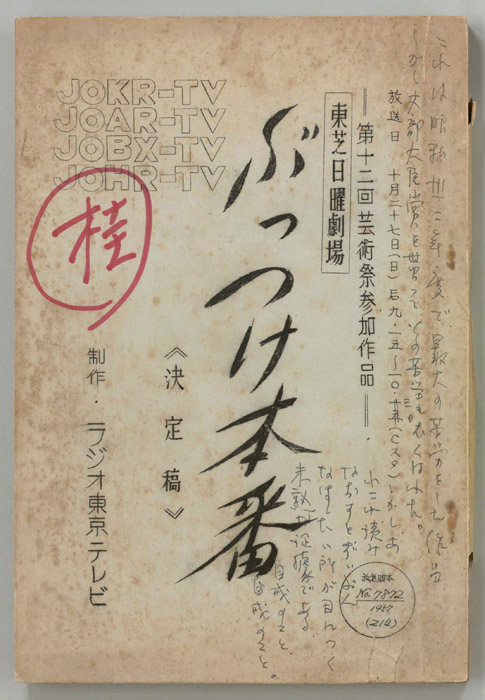 これは昭和卅二年度で最大の苦労をした作品
しかし文部大臣賞を貰ってその苦労もむくはれた。
放送日 十月二十七日(日)后九・一五〜一〇・
(Cスタ)
━━第十二回芸術祭参加作品━━
東芝日曜劇場
ぶっつけ本番
《決定稿》
JOKR-TV
JOAR-TV
JOBX-TV
JOHR-TV
桂
制作・ラジオ東京テレビ
しかし、あ
れこれ読み
なおすとずいぶん
なほしたい所が目につく
未熟な証拠である
自戒のこと、
自戒のこと。
放送脚本
No. 7872
1957
(214)